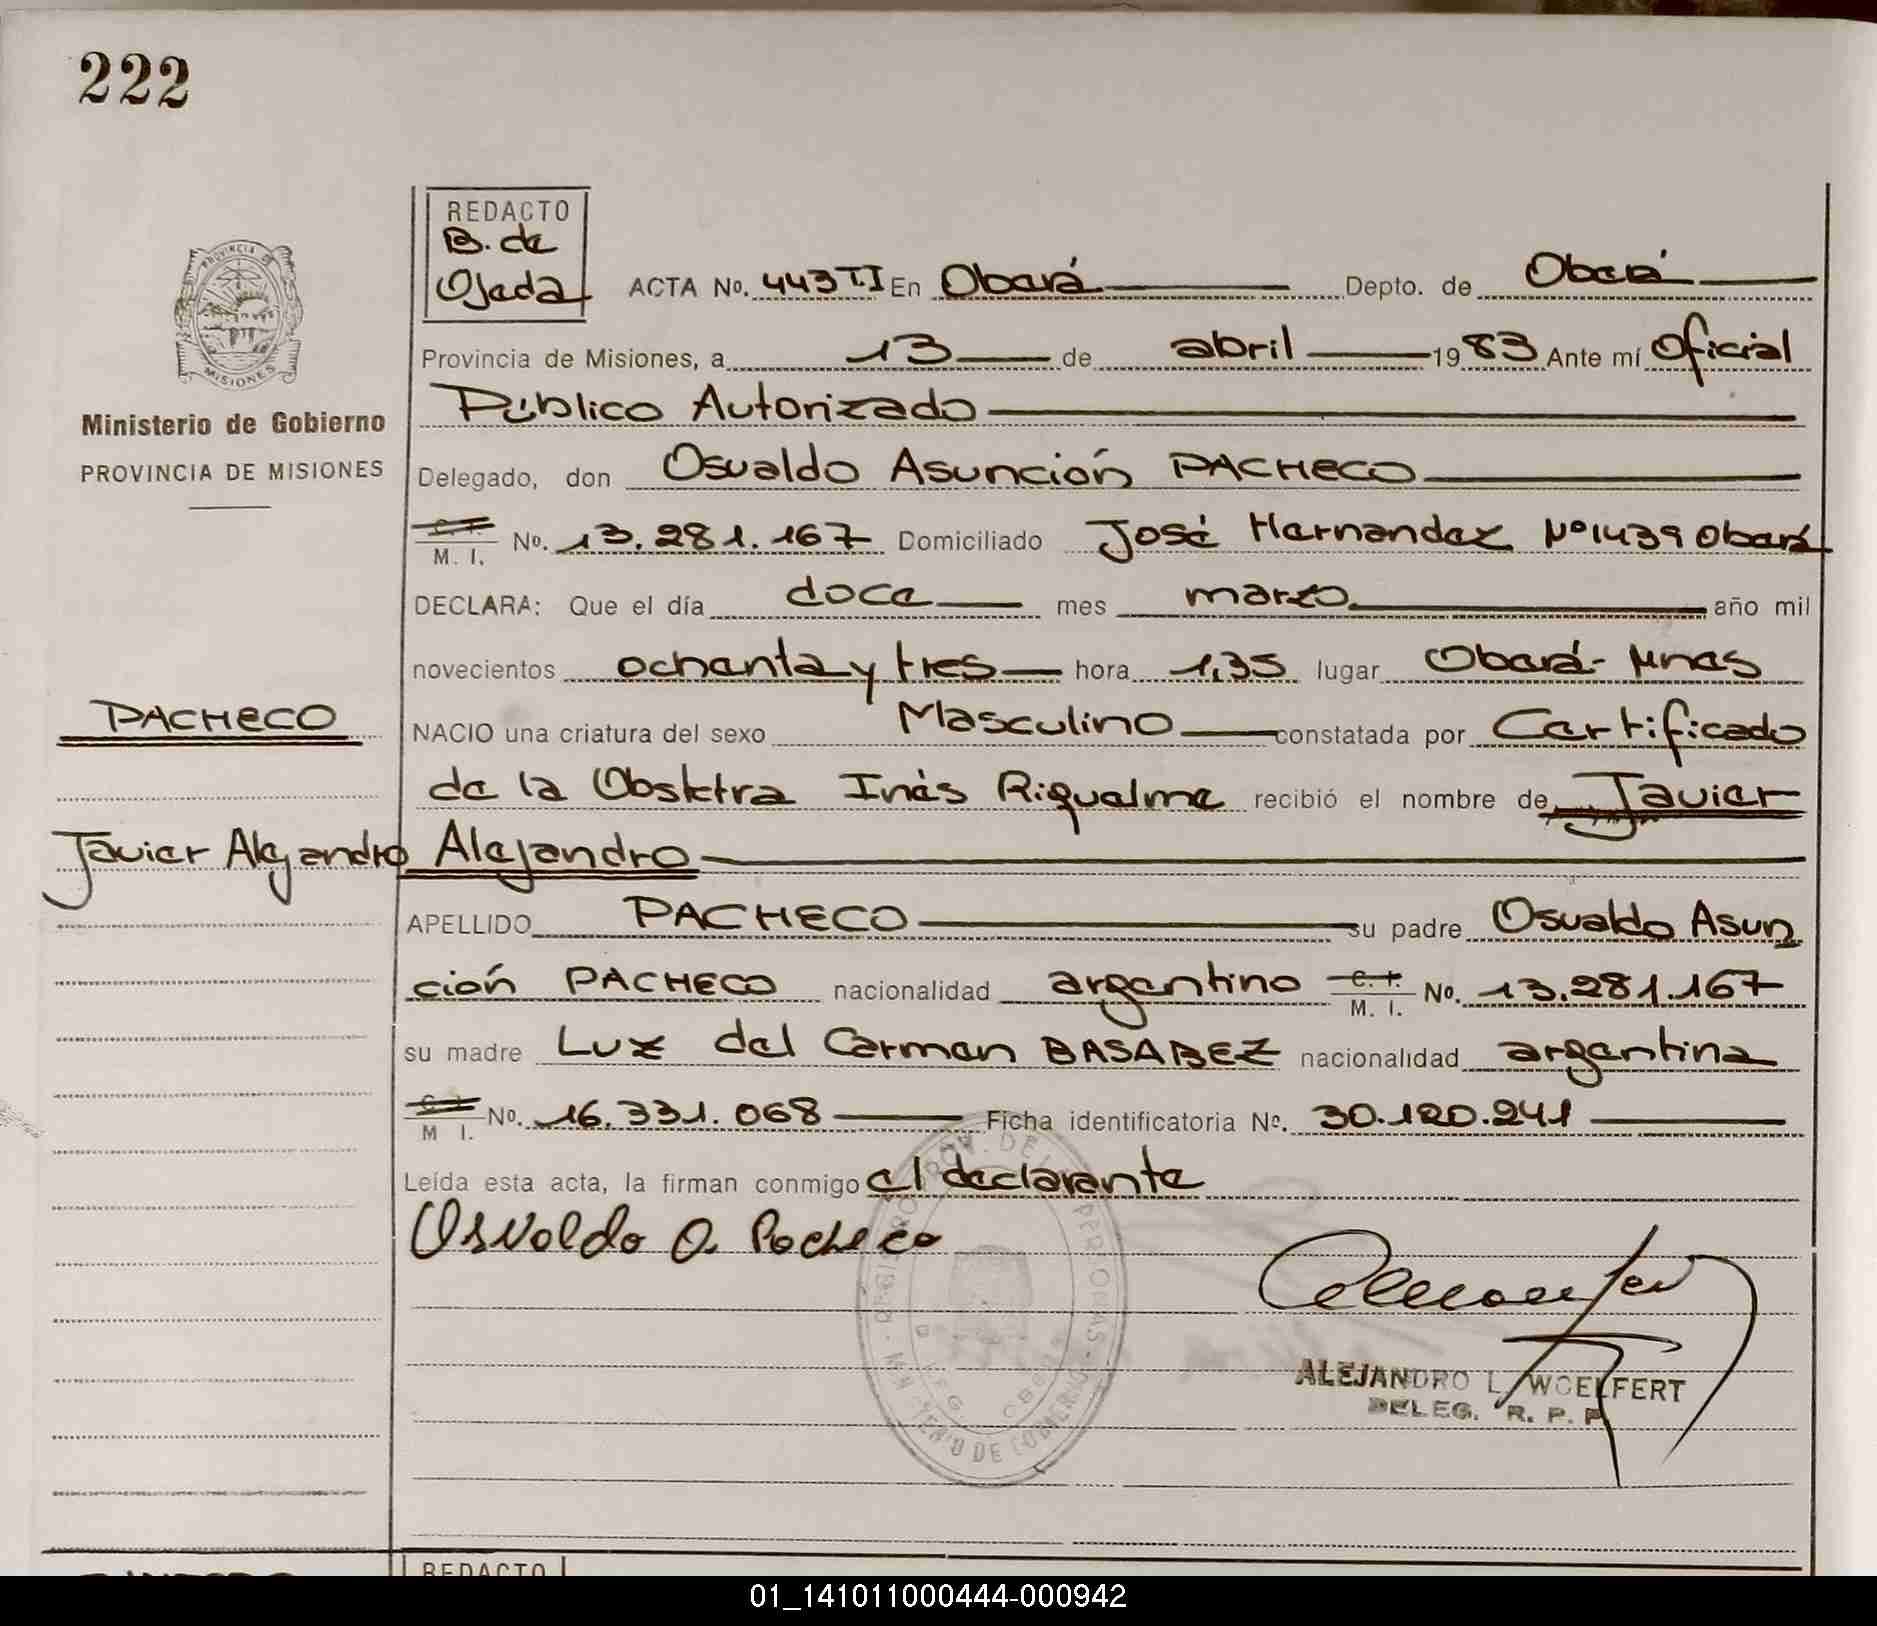 222
REDACTO
B. de
Ojeda
ACTA No. 443 TI En Oberá Depto. de Oberá
PROVINCIA DE
MISIONES
Provincia de Misiones, a 13 de abril 1983 Ante mí Oficial
Ministerio de Gobierno
Público Autorizado
PROVINCIA DE MISIONES
Delegado, don Osvaldo Asunción PACHECO
C. I.
M. I. No. 13.281.167 Domiciliado José Hernandez Nº1439 Oberá
DECLARA: Que el día doce mes marzo año mil
novecientos ochenta y tres hora 1,35 lugar Oberá- Mnes
PACHECO
NACIO una criatura del sexo Masculino constatada por Certificado
de la Obstetra Inés Riquelme recibió el nombre de Javier
Javier Alejandro
Alejandro
APELLIDO PACHECO su padre Osvaldo Asun
ción PACHECO nacionalidad argentino C. I. M. I. No. 13.281.167
su madre Luz del Carmen BASABEZ nacionalidad argentina
C. I.
M I. No. 16.331.068 Ficha identificatoria No. 30.120.241
Leída esta acta, la firman conmigo el declarante
Osvaldo A. Pacheco
ALEJANDRO L. WOELFERT
DELEG. R. P. P.
REDACTO
01_141011000444-000942